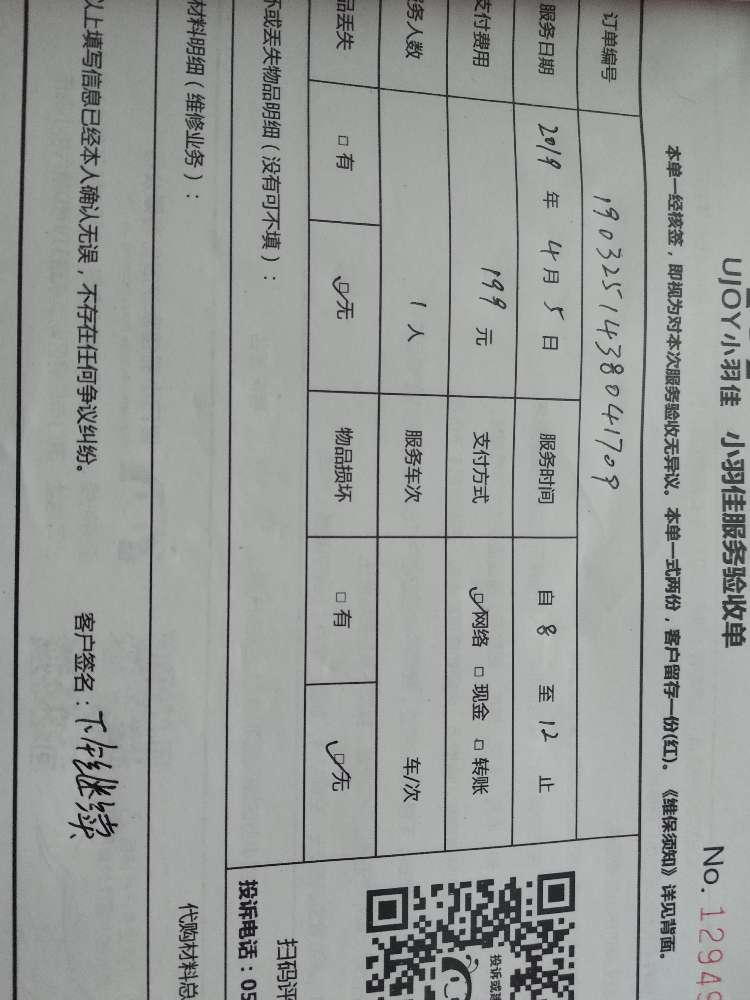 UJOY小羽佳 小羽佳服务验收单
No. 1294
本单一经核签，即视为对本次服务验收无异议。本单一式两份，客户留存一份(红)。《维保须知》详见背面。
订单编号 190325143804 1709
服务日期 2019 年 4 月 5 日 服务时间 自 8 至 12 止
支付费用 199 元 支付方式 ☑网络 □现金 □转账
务人数 1 人 服务车次 车/次
品丢失 □有 ☑无 物品损坏 □有 ☑无
坏或丢失物品明细（没有可不填）：
投诉或建
扫码评
投诉电话：05
材料明细（维修业务）： 代购材料总
以上填写信息已经本人确认无误，不存在任何争议纠纷。 客户签名：